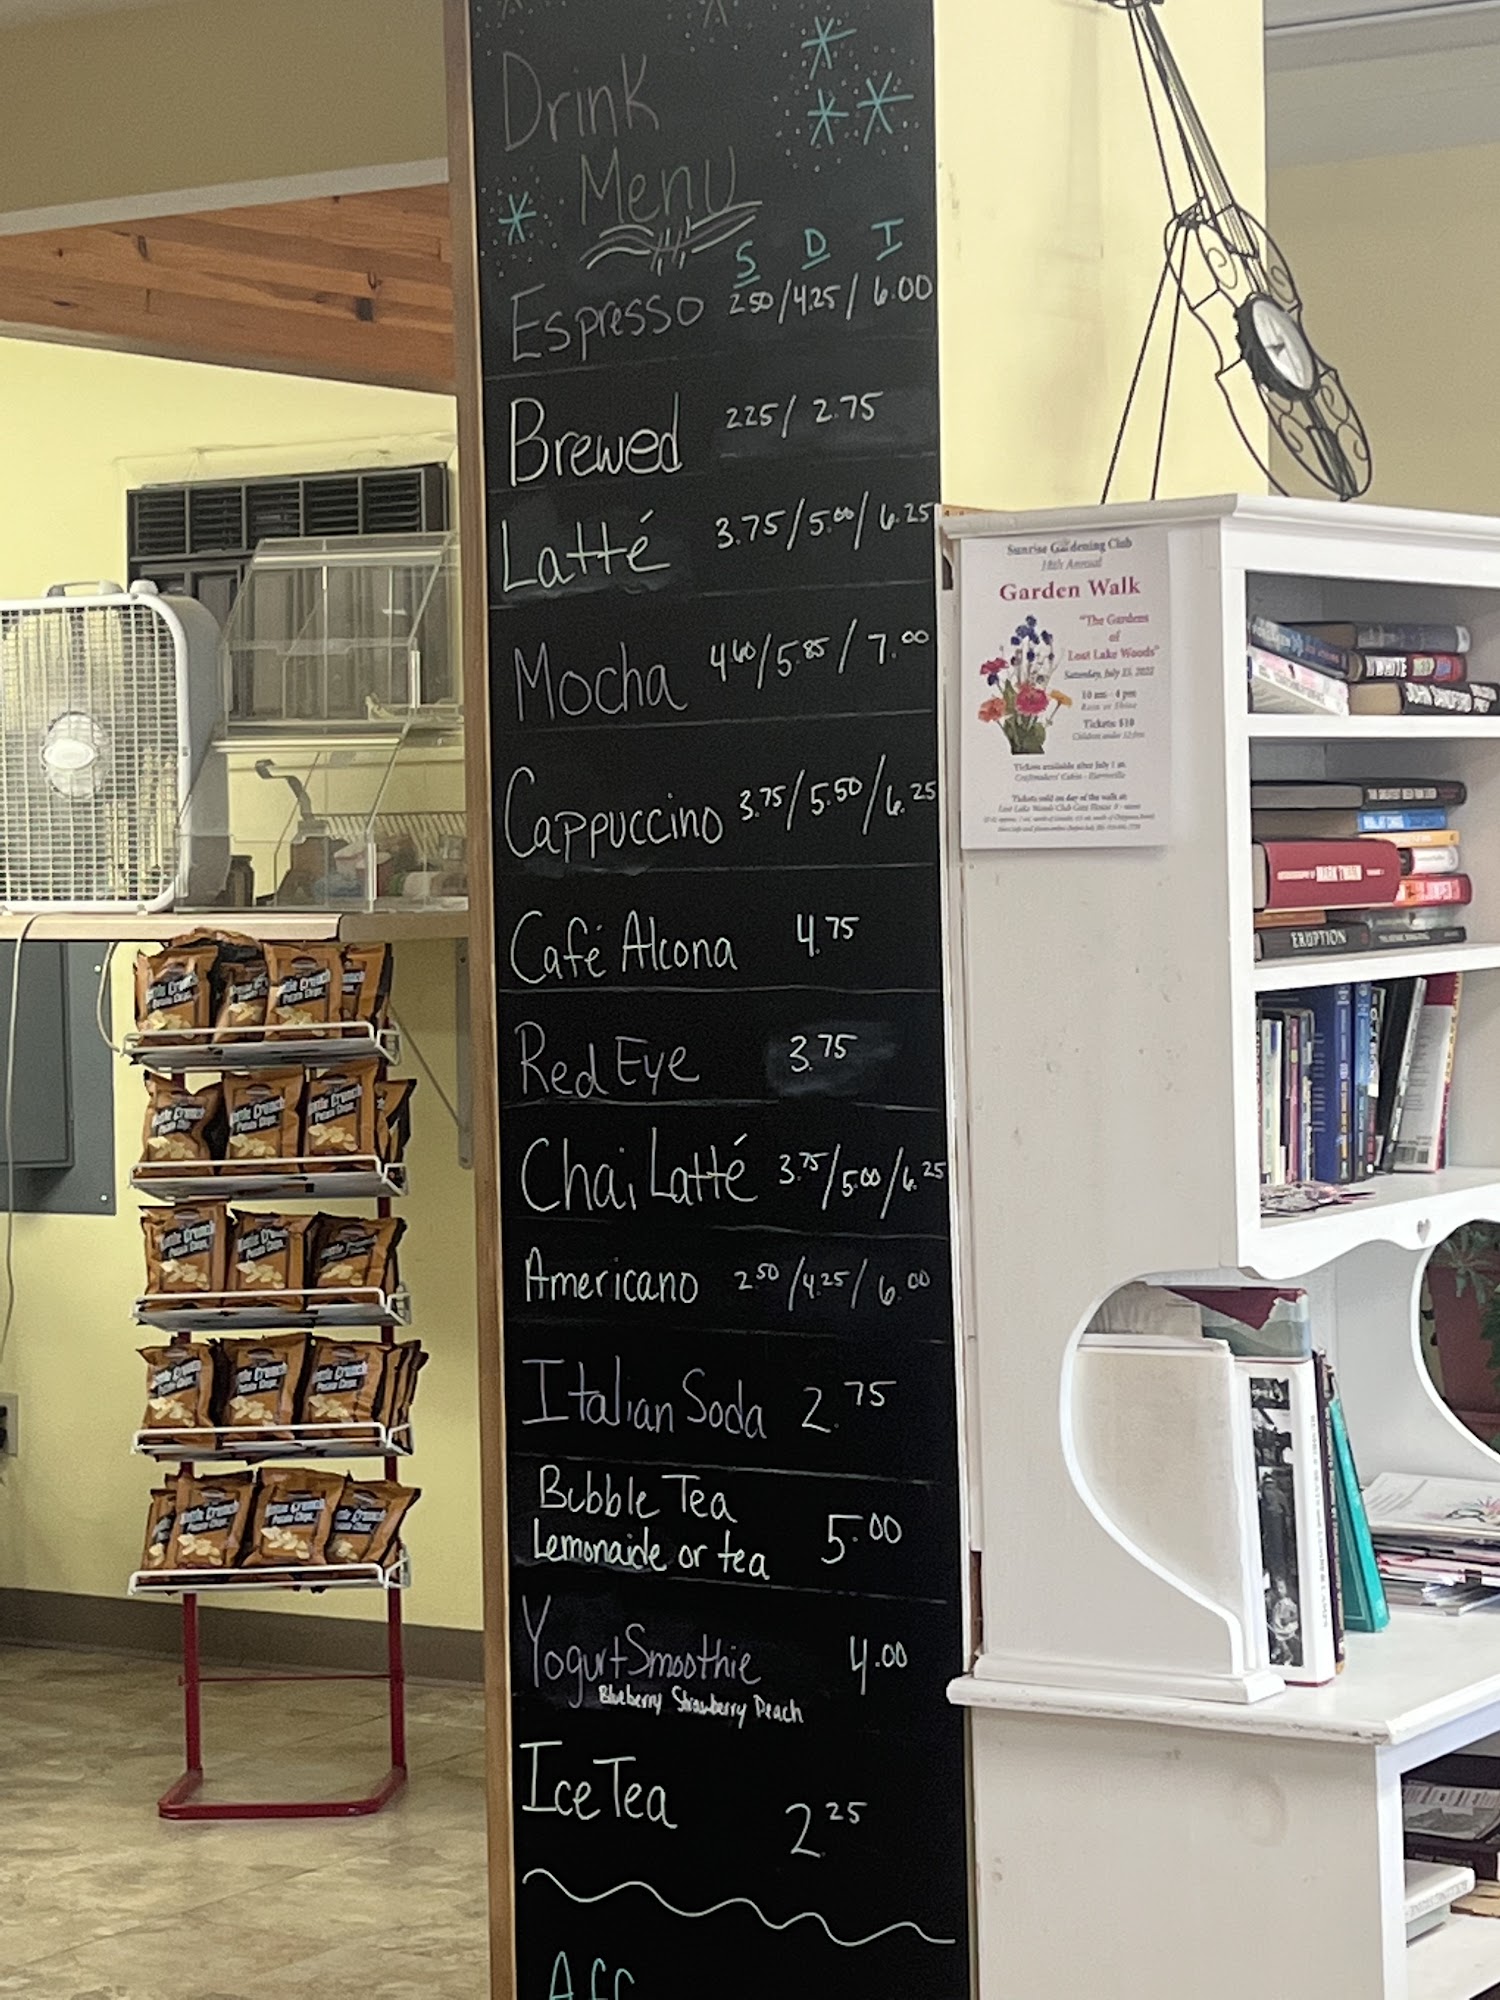 Drink
Menu
S D T
Espresso 2.50/4.25/6.00
Brewed 2.25/2.75
Latté 3.75/5.00/6.25
Mocha 4.60/5.85/7.00
Cappuccino 3.75/5.50/6.25
Café Alcona 4.75
Red Eye 3.75
Chai Latté 3.75/5.00/6.25
Americano 2.50/4.25/6.00
Italian Soda 2.75
Bubble Tea
Lemonaide or tea 5.00
Yogurt Smoothie 4.00
Blueberry Strawberry Peach
Ice Tea 2.25
Sunrise Gardening Club
18th Annual
Garden Walk
"The Gardens
of
Lost Lake Woods"
Saturday, July 23, 2022
10 am - 4 pm
Rain or Shine
Tickets: $10
Children under 12 free
Tickets available after July 1 at:
Craftmakers' Cabin - Harrisville
Tickets sold on day of the walk at:
Kettle Crunch
Potato Chips
WHITE
JOHN SANDFORD
MARK TWAIN
ERUPTION